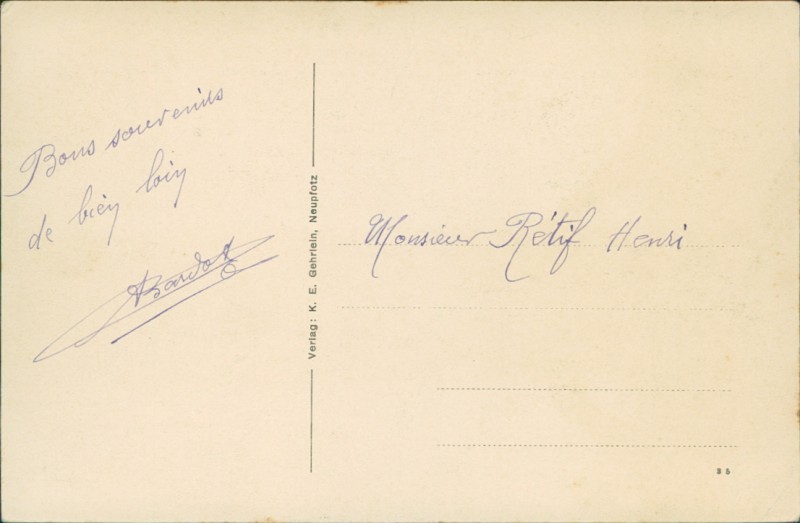 Bons souvenirs
de bien loin
ABardot
Verlag: K. E. Gehrlein, Neupfotz
Monsieur Rétif Henri
35